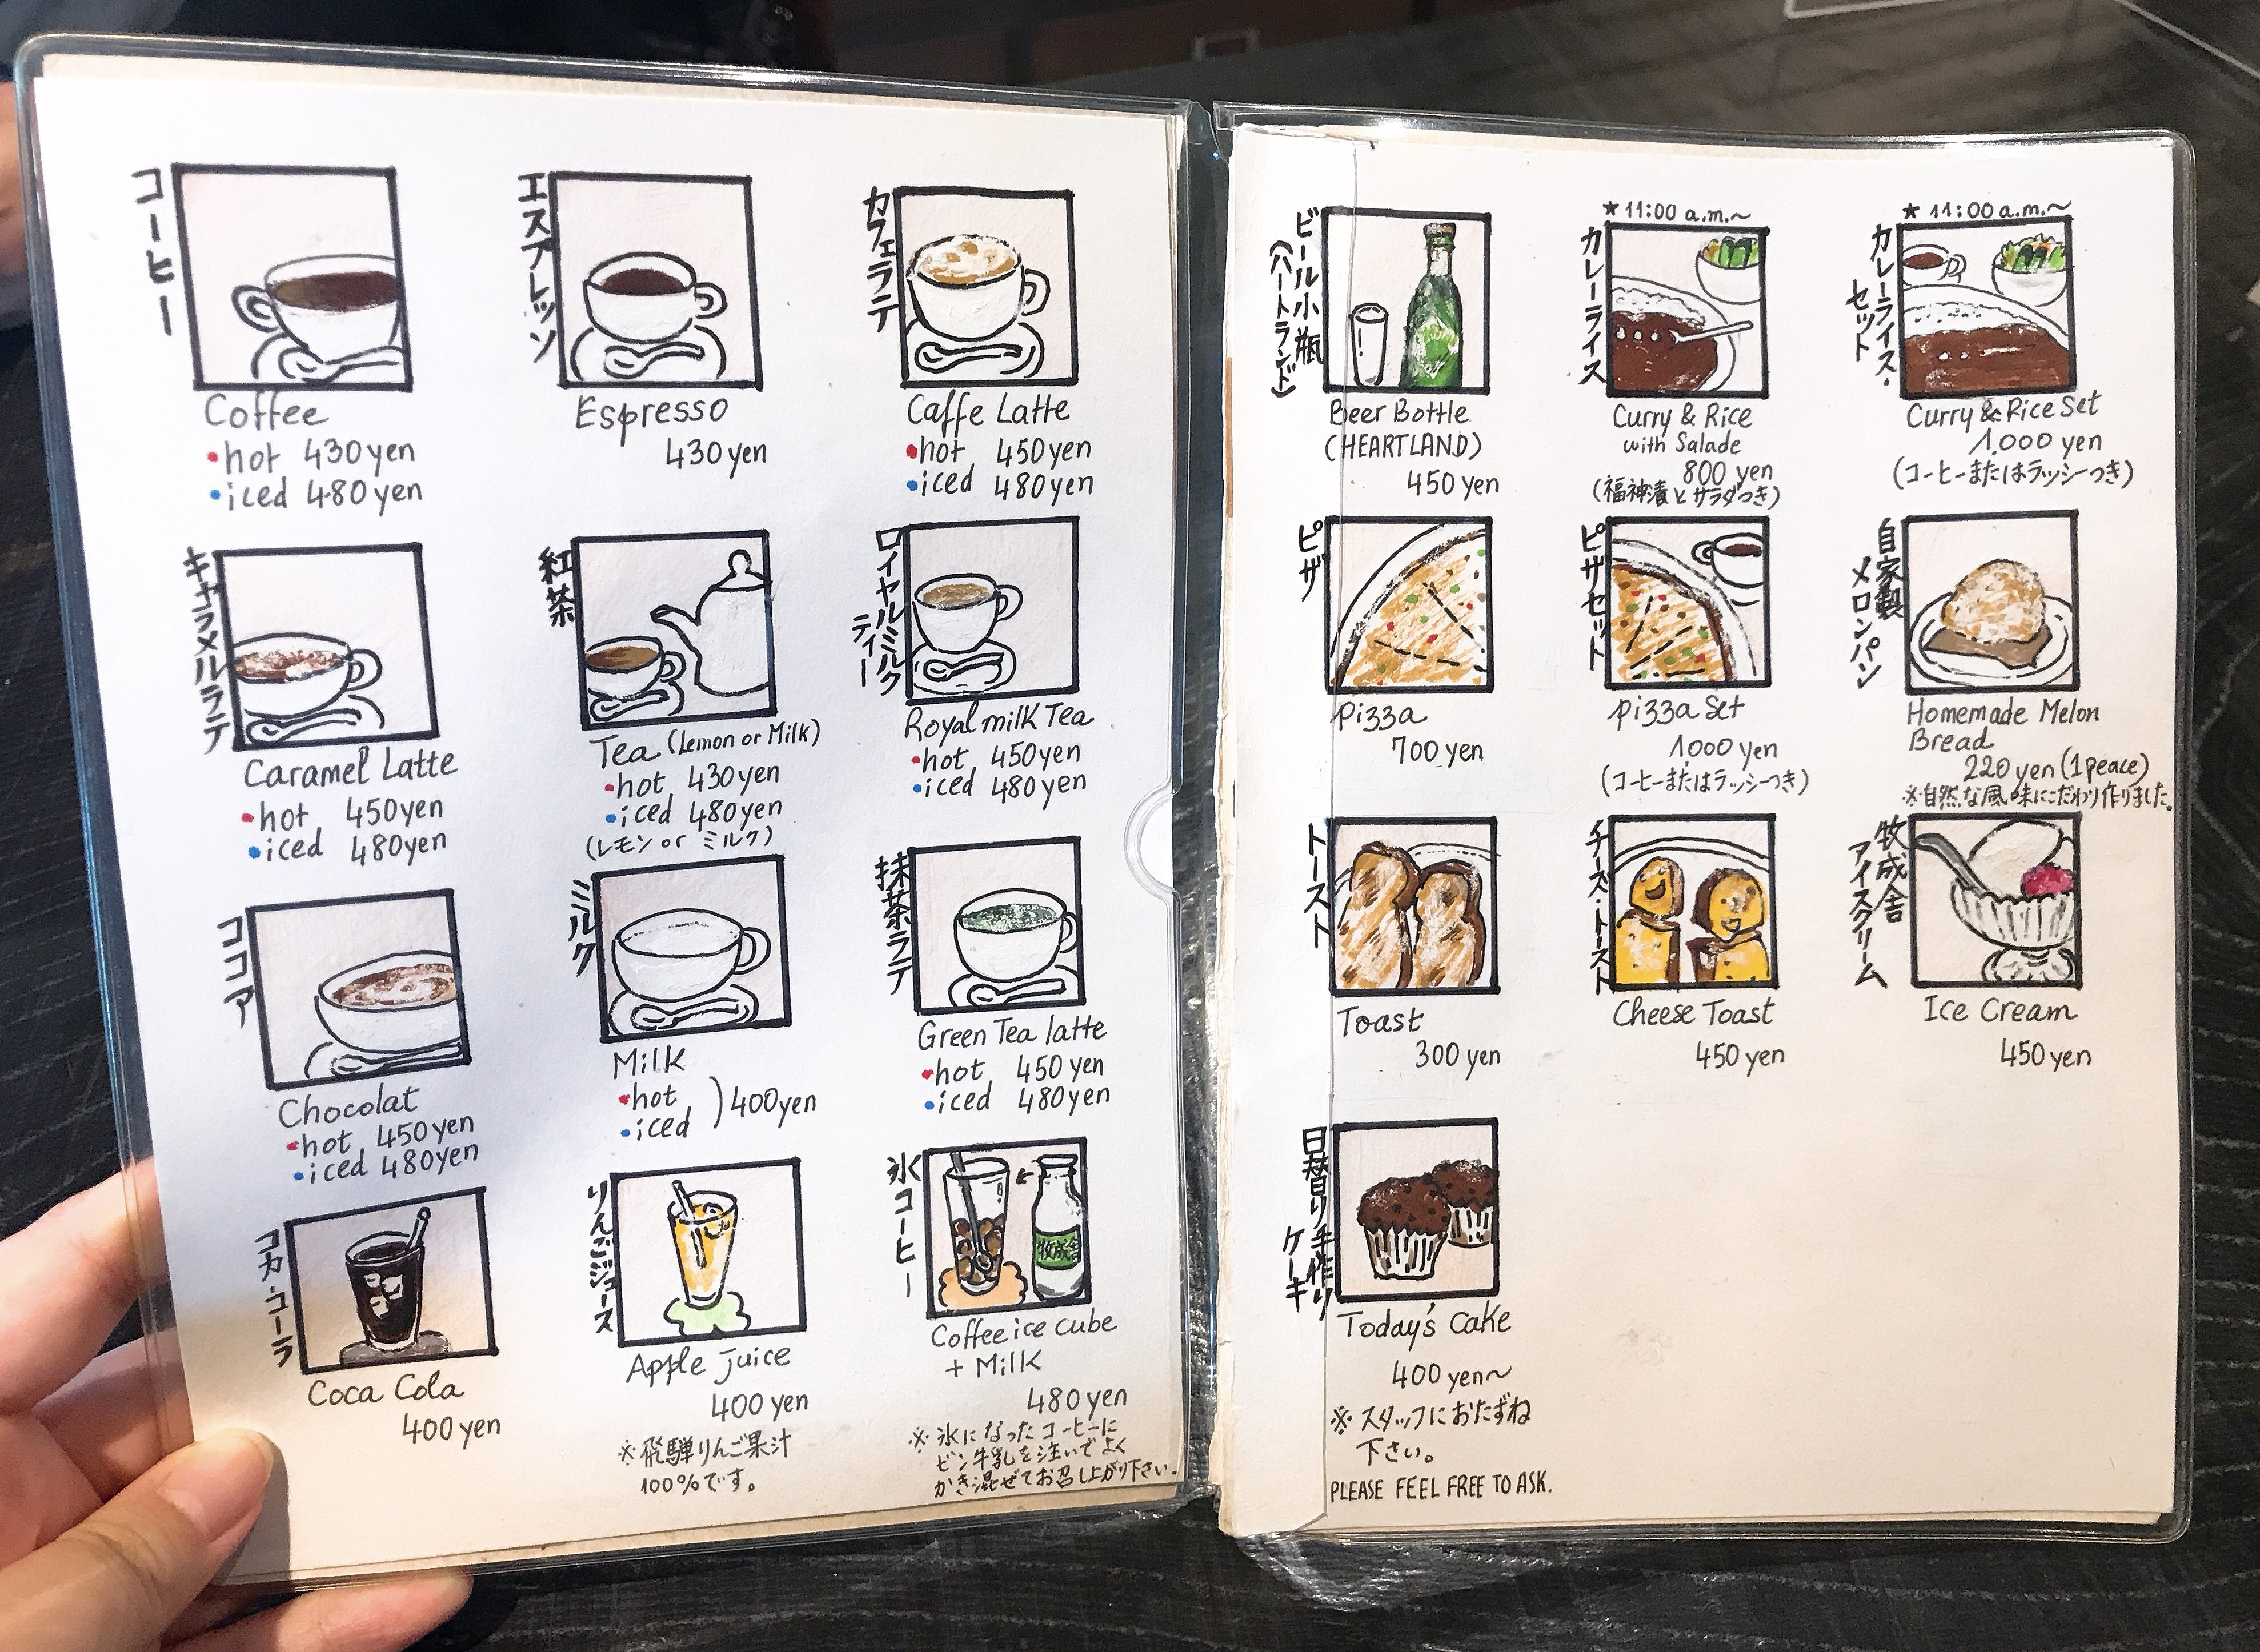 コーヒー
Coffee
•hot 430yen
•iced 480yen
エスプレッソ
Espresso
430yen
カフェラテ
Caffe Latte
•hot 450yen
•iced 480yen
キャラメルラテ
Caramel Latte
•hot 450yen
•iced 480yen
紅茶
Tea (Lemon or Milk)
•hot 430yen
•iced 480yen
(レモン or ミルク)
ロイヤルミルク
ティー
Royal milk Tea
•hot 450yen
•iced 480yen
ココア
Chocolat
•hot 450yen
•iced 480yen
ミルク
Milk
•hot
•iced
)400yen
抹茶ラテ
Green Tea latte
•hot 450yen
•iced 480yen
コカ・コーラ
Coca Cola
400yen
りんごジュース
Apple juice
400yen
※飛騨りんご果汁
100%です。
氷コーヒー
牧成舎
Coffee ice cube
+ Milk
480yen
※氷になったコーヒーに
ビン牛乳を注いでよく
かき混ぜてお召し上がり下さい。
ビール小瓶
(ハートランド)
Beer Bottle
(HEARTLAND)
450 yen
★11:00 a.m.～
カレーライス
Curry & Rice
with Salade
800 yen
(福神漬とサラダつき)
★11:00 a.m.～
カレーライス・
セット
Curry & Rice Set
1.000 yen
(コーヒーまたはラッシーつき)
ピザ
Pizza
700 yen
ピザセット
Pizza Set
1000 yen
(コーヒーまたはラッシーつき)
自家製
メロンパン
Homemade Melon
Bread
220 yen (1peace)
※自然な風味にこだわり作りました。
トースト
Toast
300 yen
チーズ・トースト
Cheese Toast
450 yen
牧成舎
アイスクリーム
Ice Cream
450 yen
日替り手作り
ケーキ
Today's Cake
400 yen～
※スタッフにおたずね
下さい。
PLEASE FEEL FREE TO ASK.